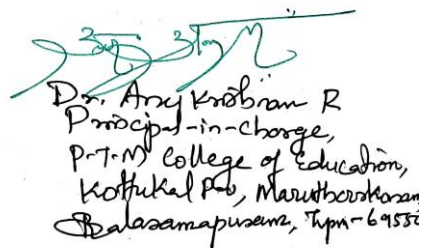 Dr. Any Krishnan R
Principal-in-charge,
P.T.M College of Education,
Kottukal P.O, Maruthoorkonam
Balaramapuram, Tvpm - 6955